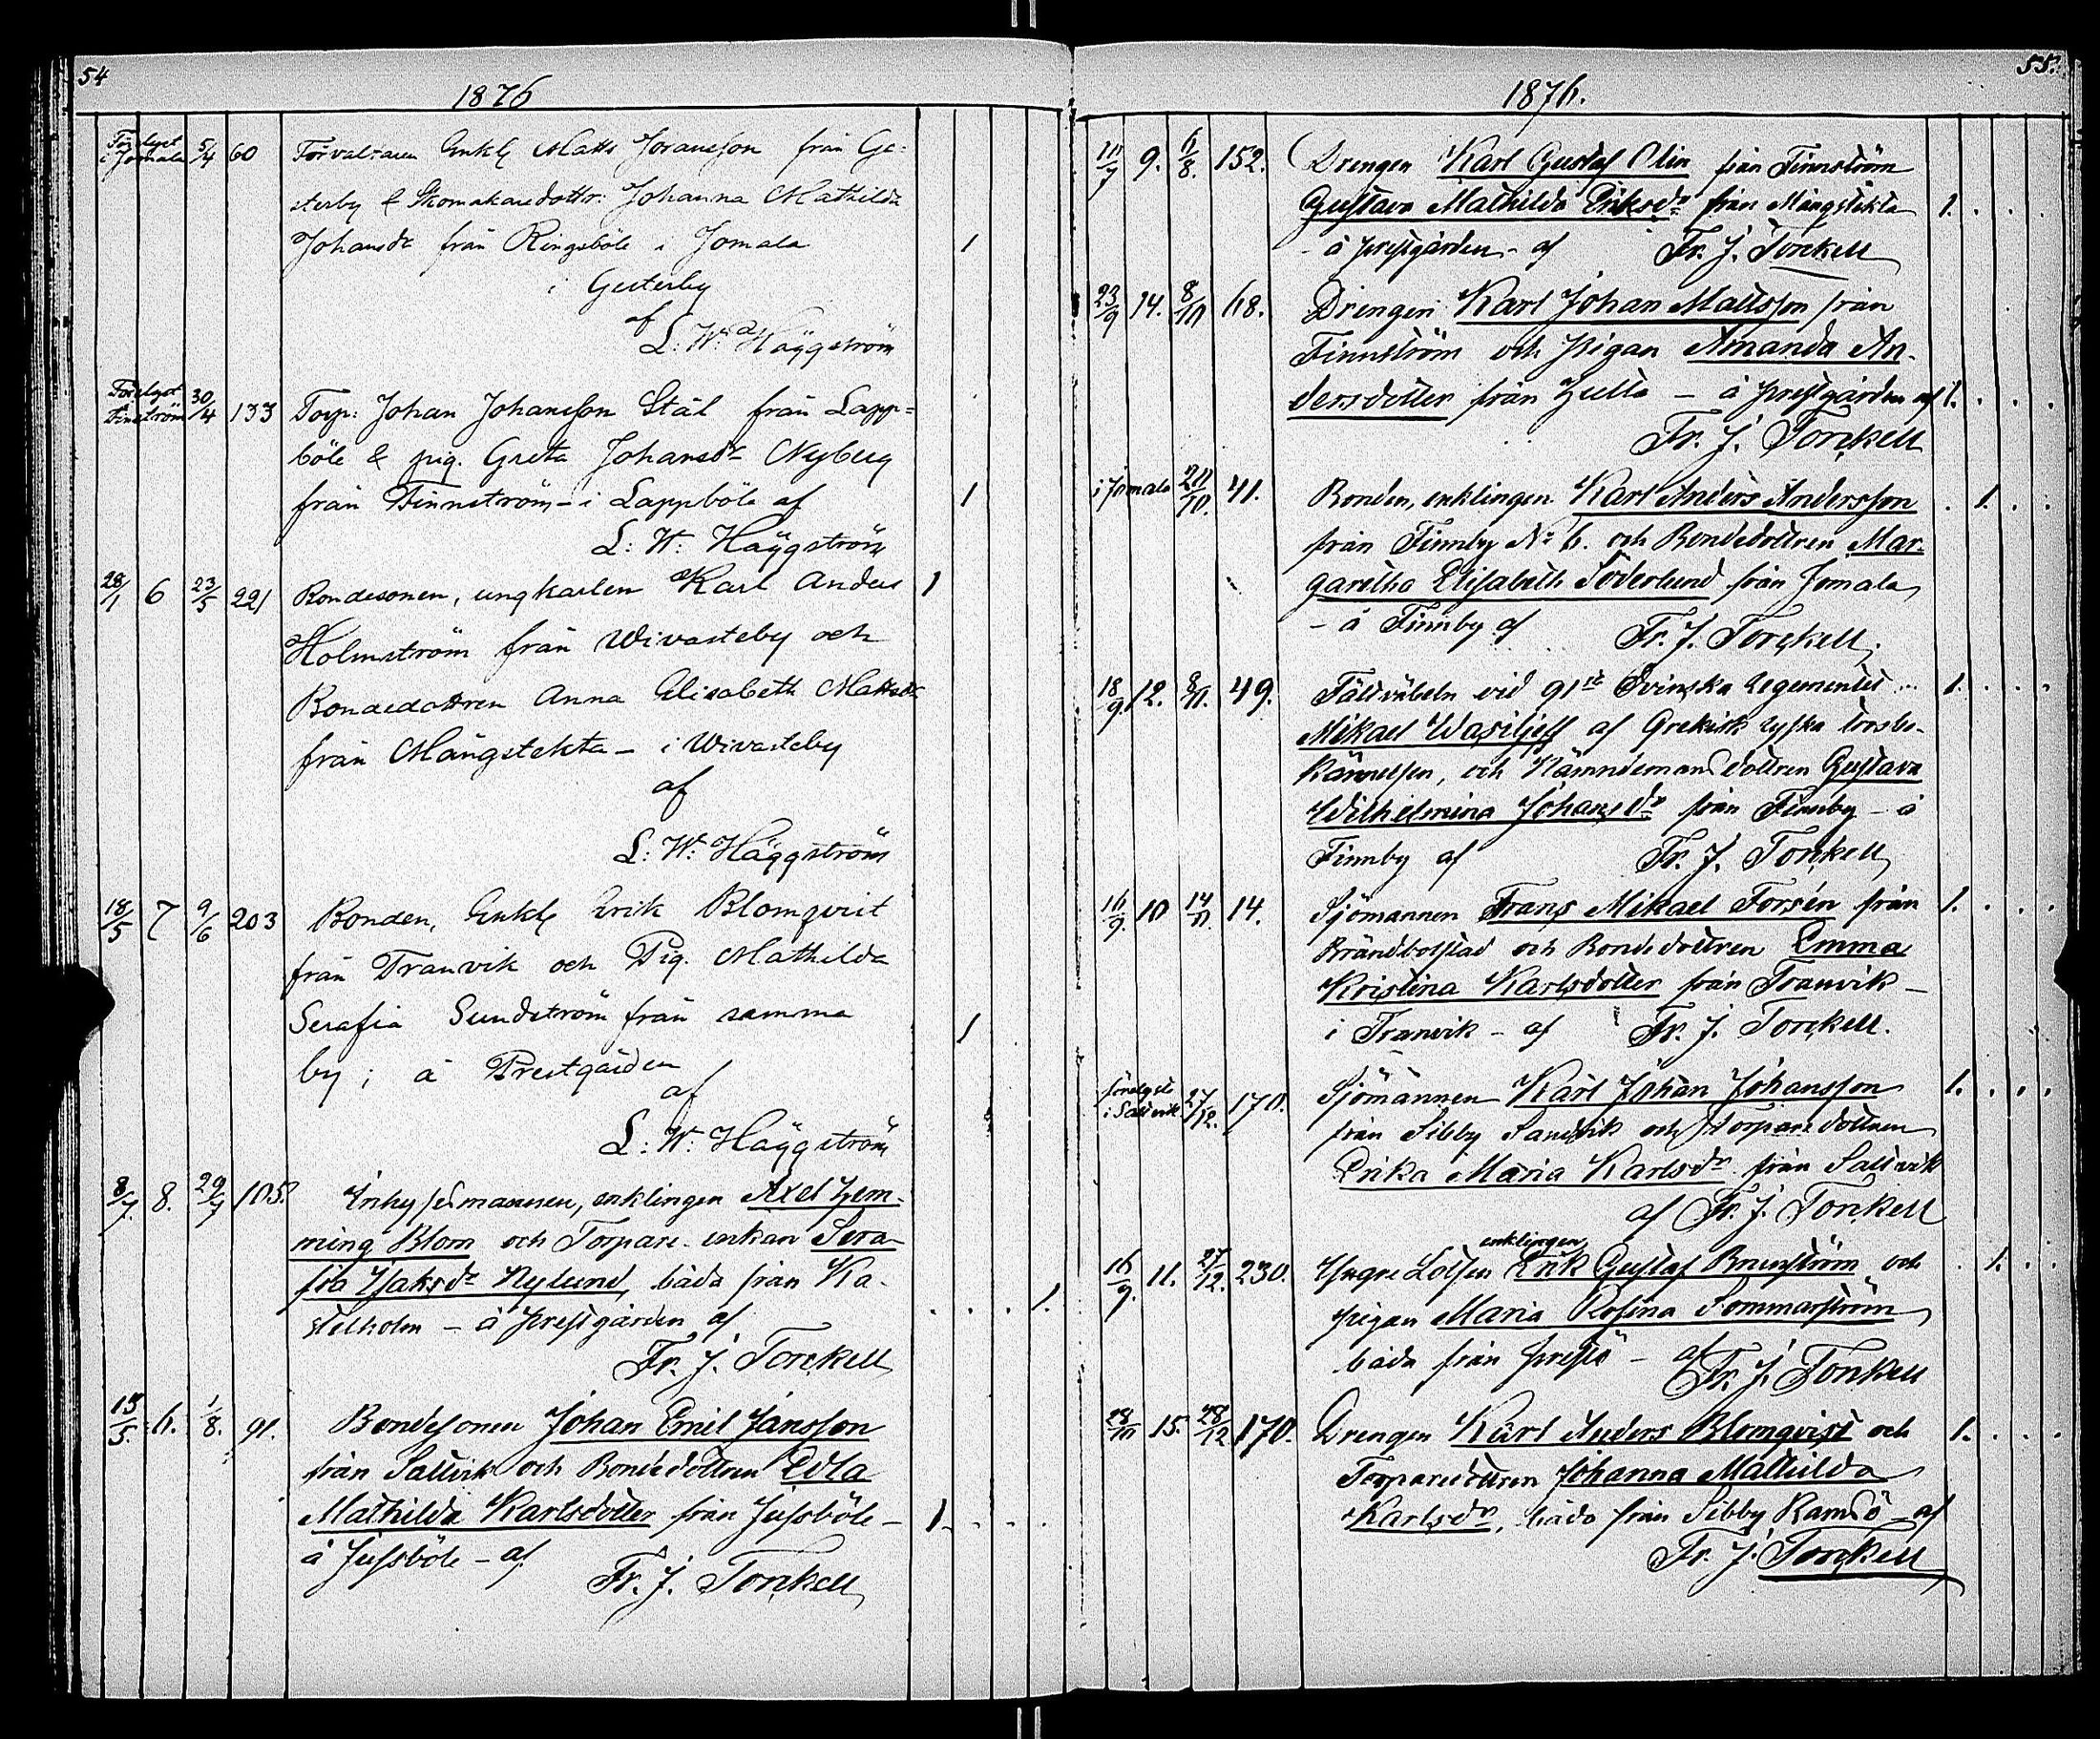 54
1876
Förelyst i Jomala 5/4 60 Förvaltaren Enkl. Matts Joransson från Ge-
sterby & Skomakaredottr: Johanna Mathilda
Johansdr från Ringsböle i Jomala 1
i Gesterby
af
L: W: Häggström
Förelyst Finström 30/4 133 Torp: Johan Johansson Stål från Lapp=
böle & pig. Greta Johansdr Nyberg
från Finnström - i Lappböle af 1
L: W: Häggström
28/1 6 23/5 221 Bondesonen, ungkarlen Karl Anders 1
Holmström från Wivasteby och
Bondedottren Anna Elisabeth Mattsdr
från Mångstekta - i Wivasteby
af
L: W: Häggström
18/5 7 9/6 203 Bonden, Enkl. Erik Blomqvist
från Tranvik och Pig. Mathilda
Serafia Sundström från samma 1
by; å Prestgården
af
L: W: Häggström
8/7. 8. 29/7 105. Inhysesmannen, enklingen Axel Hem-
ming Blom och Torpare-enkan Sera-
fia Isaksdr Nylund, båda från Ka-
stelholm - å prestgården af . . . 1.
Fr. J. Torckell
15/5. 6. 1/8. 91. Bondesonen Johan Emil Jansson
från Saltvik och Bondedottren Edla
Mathilda Karlsdotter från Jussböle - 1. . . .
å Jussböle - af
Fr. J. Torckell
55.
1876.
10/7 9. 6/8. 152. Drengen Karl Gustaf Olin från Finnström
Gustava Mathilda Eriksdr från Mångstekta 1. . . .
- å prestgården - af Fr. J. Torckell
23/9 14. 8/10 68. Drengen Karl Johan Mattsson från
Finnström och pigan Amanda An-
dersdotter från Hulta - å prestgården af 1. . . .
Fr. J. Torckell
i Jomala 20/10. 41. Bonden, enklingen Karl Anders Andersson . 1. . .
från Finnby No 6. och Bondedottren Mar-
garetha Elisabeth Söderlund från Jomala
- å Finnby af Fr. J. Torckell.
18/9. 12. 8/11. 49. Fältväbeln vid 91sta Dvinska regementet 1. . . .
Mikael Wasiljeff af Grekisk ryska trosbe-
kännelsen, och Nämndemansdottren Gustava
Wilhelmina Johansdr från Finnby - å
Finnby af Fr. J. Torckell
16/9. 10 14/11. 14. Sjömannen Frans Mikael Forsén från 1. . . .
Brändbolstad och Bondedottren Emma
Kristina Karlsdotter från Tranvik -
i Tranvik - af Fr. J. Torckell.
förelyste i Saltvik 27/12. 170. Sjömannen Karl Johan Johansson 1. . . .
från Sibby Sandvik och Torparedottren
Erika Maria Karlsdr från Saltvik
af Fr. J. Torckell
enklingen
16/9. 11. 27/12. 230. Yngre Lotsen Erik Gustaf Brunström och . 1. . .
pigan Maria Rosina Sommarström
båda från prestö - af
Fr. J. Torckell
28/10 15. 28/12 170. Drengen Karl Anders Blomqvist och 1. . . .
Torparedottren Johanna Mathilda
Karlsdr, båda från Sibby Ramsö - af
Fr. J. Torckell